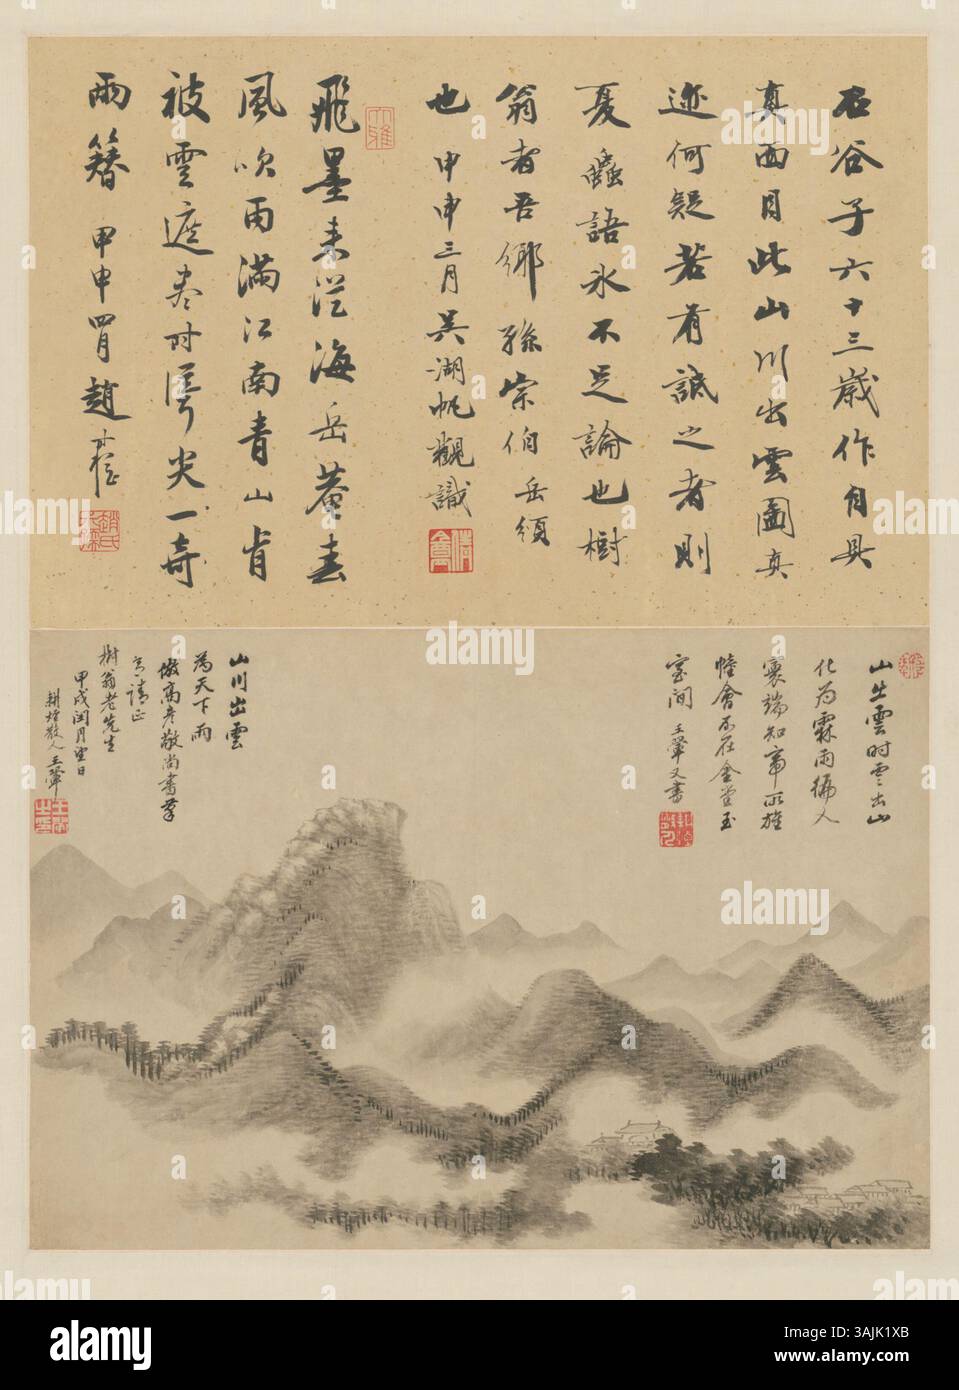 石谷子六十三歲作自具
真面目此山川出雲圖真
迹何疑若有詆之者則
夏蟲語氷不足論也樹
翁者吾鄉孫宗伯岳頒
也 甲申三月吳湖帆觀識
飛墨未從海岳菴春
風吹雨滿江南青山肯
被雲遮盡時浮尖一奇
雨簪 甲申四月趙
山出雲時雲出山
化為霖雨徧人
寰端知帝所旌
幢會不在金堂玉
室間 王翬又書
山川出雲
為天下雨
倣高彥敬尚書筆
意請正
樹翁老先生
甲戌閏月望日
耕煙散人王翬
alamy
Image ID: 3AJK1XB
www.alamy.com